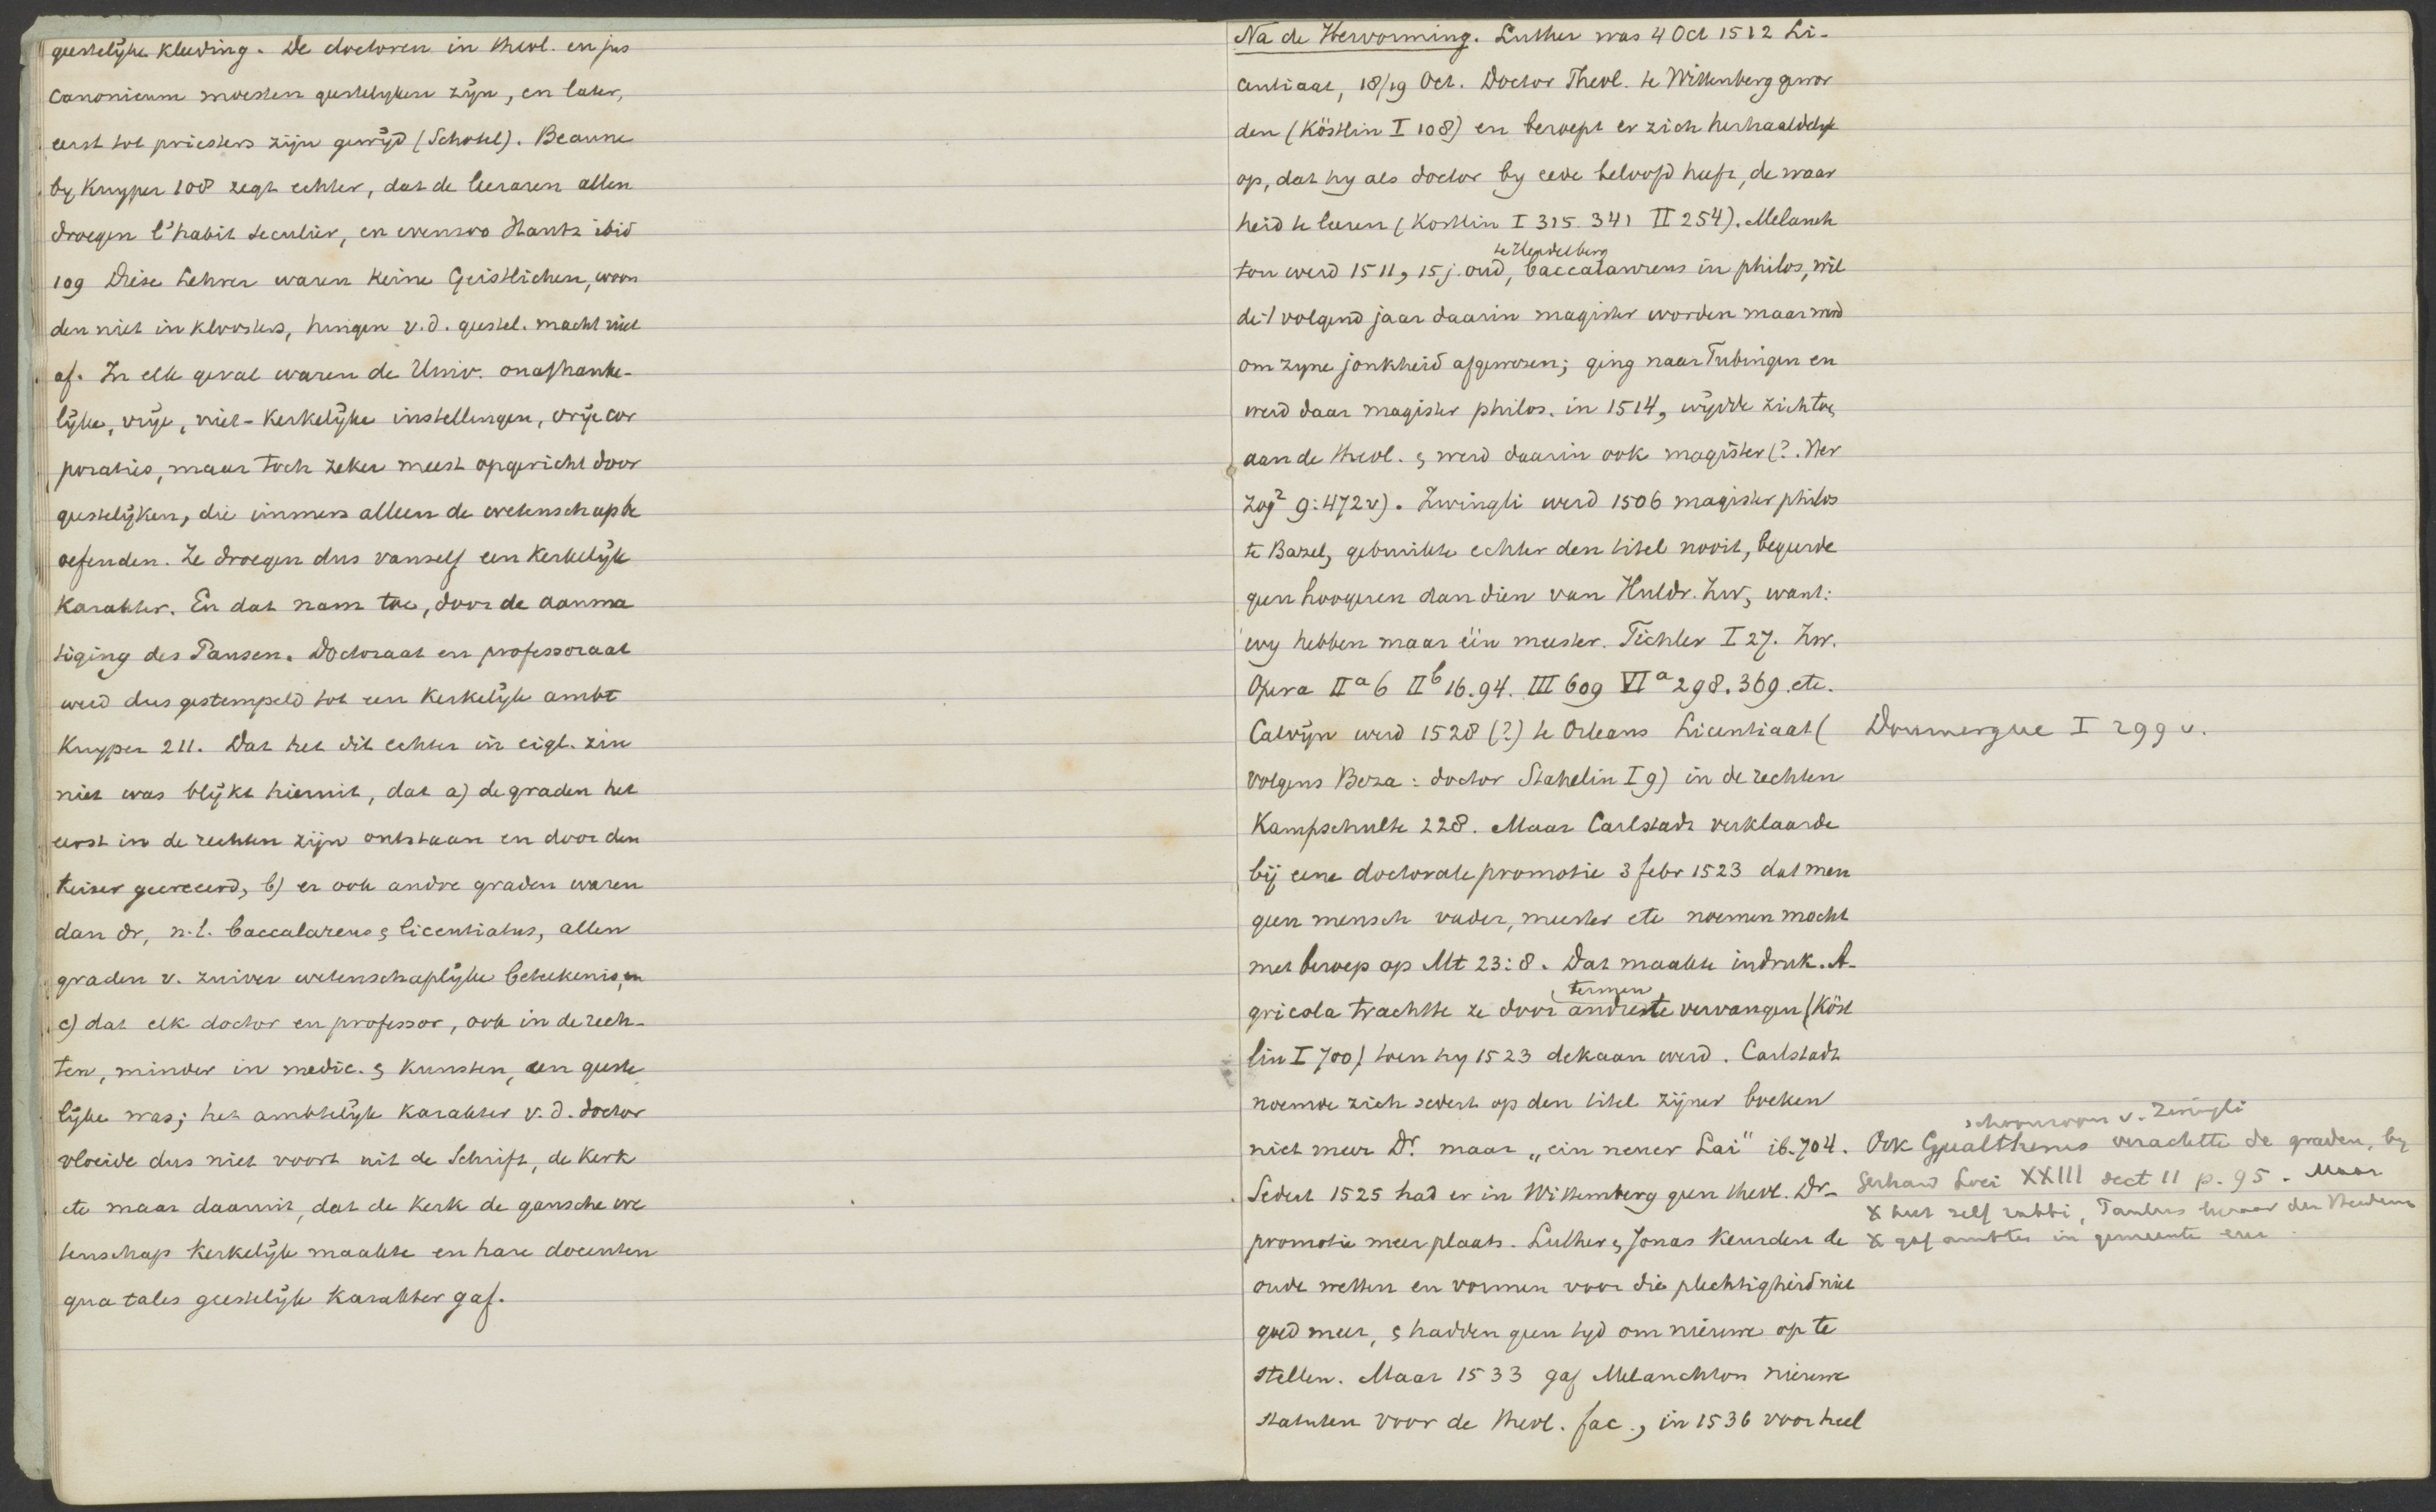 geestelyke kleeding. De doctoren in theol. en jus
canonicum moesten geestelyken zijn, en later,
eerst tot priesters zijn gewijd (Schotel). Beaune
by Kuyper 108 zegt echter, dat de leeraren allen
droegen l'habit seculier, en evenzoo Hautz ibid
109 Diese Lehrer waren keine Geistlichen, woon
den niet in kloosters, hingen v. d. geestel. macht niet
af. In elk geval waren de Univ. onafhanke-
lijke, vrije, niet-kerkelijke instellingen, vrije cor
poraties, maar toch zeker meest opgericht door
geestelijken, die immers alleen de wetenschap be
oefenden. Ze droegen dus vanself een kerkelijk
karakter. En dat nam toe, door de aanma
tiging des Pausen. Doctoraat en professoraat
werd dus gestempeld tot een kerkelijk ambt
Kuyper 211. Dat het dit echter in eigl. zin
niet was blijkt hieruit, dat a) de graden het
eerst in de rechten zijn ontstaan en door den
keizer gecreeerd, b) er ook andre graden waren
dan dr, n.l. baccalareus & licentiatus, allen
graden v. zuiver wetenschaplijke beteekenis, en
c) dat elk doctor en professor, ook in de rech-
ten, minder in medic. & kunsten, een geeste
lijke was; het ambtelijk karakter v. d. doctor
vloeide dus niet voort uit de Schrift, de kerk
etc maar daaruit, dat de kerk de gansche we
tenschap kerkelijk maakte en hare docenten
qua tales geestelijk karakter gaf.
Na de Hervorming. Luther was 4 Oct 1512 Li-
centiaat, 18/19 Oct. Doctor Theol. te Wittenberg gewor
den (Köstlin I 108) en beroept er zich herhaaldelijk
op, dat hy als doctor by eede beloofd heeft, de waar
heid te leeren (Kostlin I 315. 341 II 254). Melanch
te Heidelberg
ton werd 1511, 15 j. oud, baccalaureus in philos, wil
de 't volgend jaar daarin magister worden maar werd
om zyne jonkheid afgewezen; ging naar Tubingen en
werd daar magister philos. in 1514, wijdde zich toe
aan de theol. & werd daarin ook magister (?. Her
zog² 9:472 v). Zwingli werd 1506 magister philos
te Bazel, gebruikte echter den titel nooit, begeerde
geen hoogeren dan dien van Huldr. Zw, want:
wy hebben maar één meester. Tichler I 27. Zw.
Opera IIa 6 IIb 16. 94. III 609 VIa 298. 369. etc.
Calvijn werd 1528 (?) te Orleans Licentiaat ( Doumergue I 299 v.
volgens Beza: doctor Stahelin I 9) in de rechten
Kampschulte 228. Maar Carlstadt verklaarde
bij eene doctorale promotie 3 febr 1523 dat men
geen mensch vader, meester etc noemen mocht
met beroep op Mt 23:8. Dat maakte indruk. A-
termen
gricola trachtte ze door andere te vervangen (Köst
lin I 700) toen hy 1523 dekaan werd. Carlstadt
noemde zich sedert op den titel zijner boeken
niet meer Dr. maar „ein neuer Lai" ib. 704.
Sedert 1525 had er in Wittemberg geen theol. Dr-
promotie meer plaats. Luther & Jonas keurden de
oude wetten en vormen voor die plechtigheid niet
goed meer, & hadden geen tyd om nieuwe op te
stellen. Maar 1533 gaf Melanchton nieuwe
statuten voor de theol. fac., in 1536 voor heel
schoonzoon v. Zwingli
Ook Gualtherus verachtte de graden, by
Gerhard Loci XXIII sect 11 p. 95. Maar
X heet zelf rabbi, Paulus leeraar der Heidenen
X gaf ambten in gemeente eer